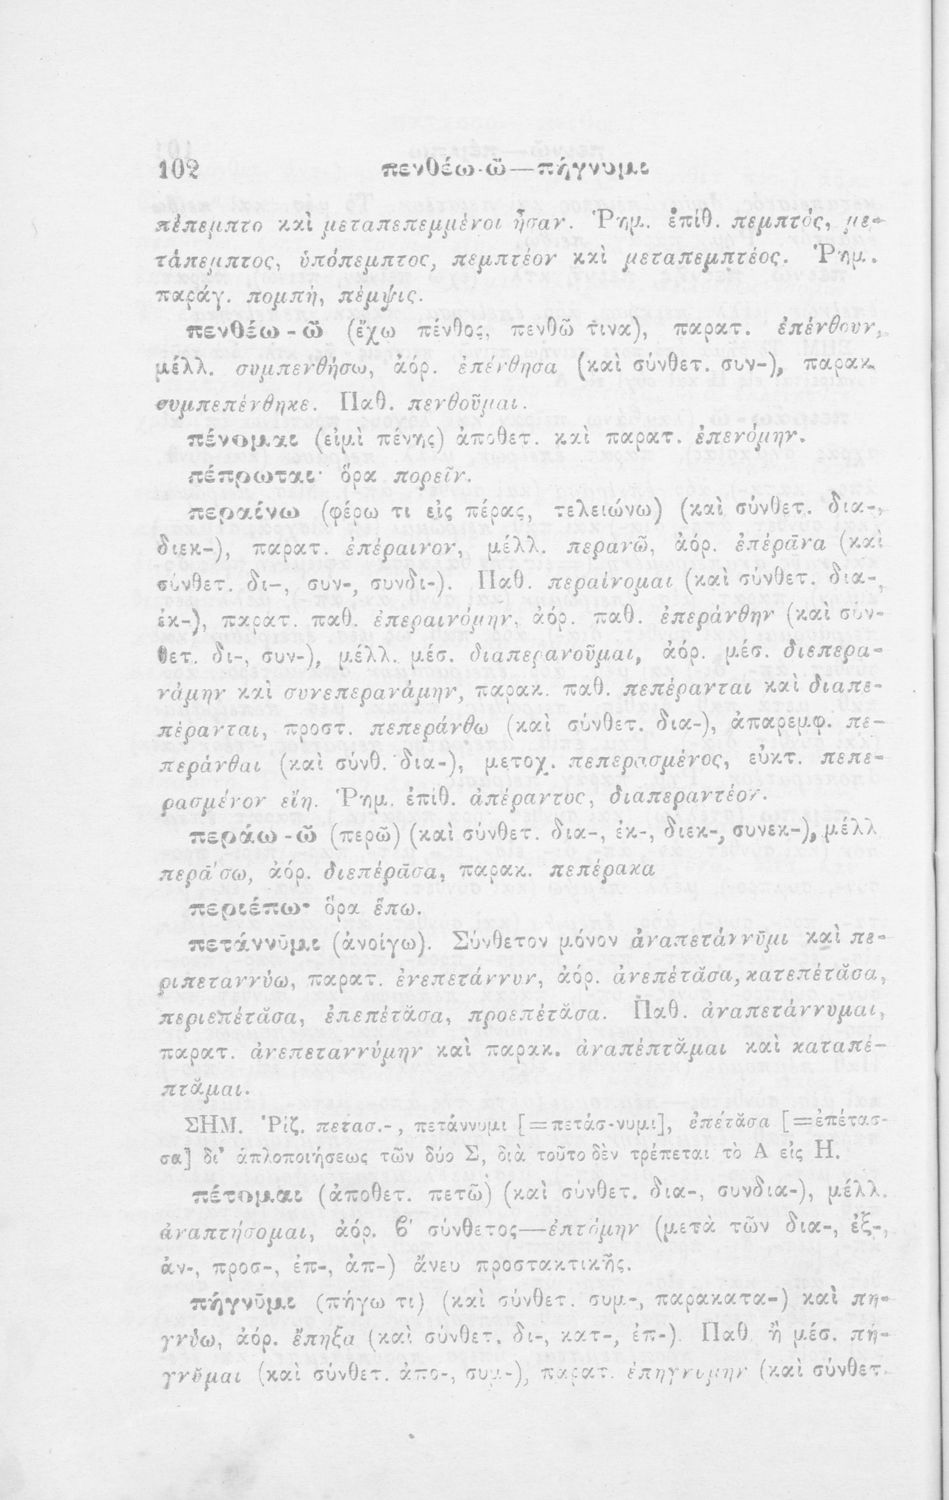 102 πενθέω-ῶ—πήγνυμι
πέπεμπτο καὶ μεταπεπεμμένοι ἦσαν. Ῥημ. ἐπίθ. πεμπτός, με-
τάπεμπτος, ὑπόπεμπτος, πεμπτέον καὶ μεταπεμπτέος. Ῥημ.
παράγ. πομπή, πέμψις.
πενθέω-ῶ (ἔχω πένθος, πενθῶ τινα), παρατ. ἐπένθουν,
μέλλ. συμπενθήσω, ἀόρ. ἐπένθησα (καὶ σύνθετ. συν-), παρακ.
συμπεπένθηκε. Παθ. πενθοῦμαι.
πένομαι (εἰμὶ πένης) ἀποθετ. καὶ παρατ. ἐπενόμην.
πέπρωται· ὅρα πορεῖν.
περαίνω (φέρω τι εἰς πέρας, τελειώνω) (καὶ σύνθετ. δια-,
διεκ-), παρατ. ἐπέραινον, μέλλ. περανῶ, ἀόρ. ἐπέρᾱνα (καὶ
σύνθετ. δι-, συν-, συνδι-). Παθ. περαίνομαι (καὶ σύνθετ. δια-,
ἐκ-), παρατ. παθ. ἐπεραινόμην, ἀόρ. παθ. ἐπεράνθην (καὶ σύν-
θετ. δι-, συν-), μέλλ. μέσ. διαπερανοῦμαι, ἀόρ. μέσ. διεπερα-
νάμην καὶ συνεπερανάμην, παρακ. παθ. πεπέρανται καὶ διαπε-
πέρανται, προστ. πεπεράνθω (καὶ σύνθετ. δια-), ἀπαρεμφ. πε-
περάνθαι (καὶ σύνθ. δια-), μετοχ. πεπερασμένος, εὐκτ. πεπε-
ρασμένον εἴη. Ῥημ. ἐπίθ. ἀπέραντος, διαπεραντέον.
περάω-ῶ (περῶ) (καὶ σύνθετ. δια-, ἐκ-, διεκ-, συνεκ-), μέλλ
περᾱ́σω, ἀόρ. διεπέρᾱσα, παρακ. πεπέρακα
περιέπω· ὅρα ἕπω.
πετάννῡμι (ἀνοίγω). Σύνθετον μόνον ἀναπετάννῡμι καὶ πε-
ριπεταννύω, παρατ. ἐνεπετάννυν, ἀόρ. ἀνεπέτᾰσα, κατεπέτᾰσα,
περιεπέτᾰσα, ἐπεπέτᾰσα, προεπέτᾰσα. Παθ. ἀναπετάννυμαι,
παρατ. ἀνεπεταννύμην καὶ παρακ. ἀναπέπτᾰμαι καὶ καταπέ-
πτᾰμαι.
ΣΗΜ. Ῥίζ. πετασ.-, πετάννυμι [=πετάσ-νυμι], ἐπέτᾰσα [=ἐπέτασ-
σα] δι' ἁπλοποιήσεως τῶν δύο Σ, διὰ τοῦτο δὲν τρέπεται τὸ Α εἰς Η.
πέτομαι (ἀποθετ. πετῶ) (καὶ σύνθετ. δια-, συνδια-), μέλλ.
ἀναπτήσομαι, ἀόρ. β' σύνθετος—ἐπτόμην (μετὰ τῶν δια-, ἐξ-,
ἀν-, προσ-, ἐπ-, ἀπ-) ἄνευ προστακτικῆς.
πήγνῡμι (πήγω τι) (καὶ σύνθετ. συμ-, παρακατα-) καὶ πη-
γνύω, ἀόρ. ἔπηξα (καὶ σύνθετ. δι-, κατ-, ἐπ-) Παθ ἢ μέσ. πή-
γνῠμαι (καὶ σύνθετ. ἀπο-, συμ-), παρατ. ἐπηγνύμην (καὶ σύνθετ.